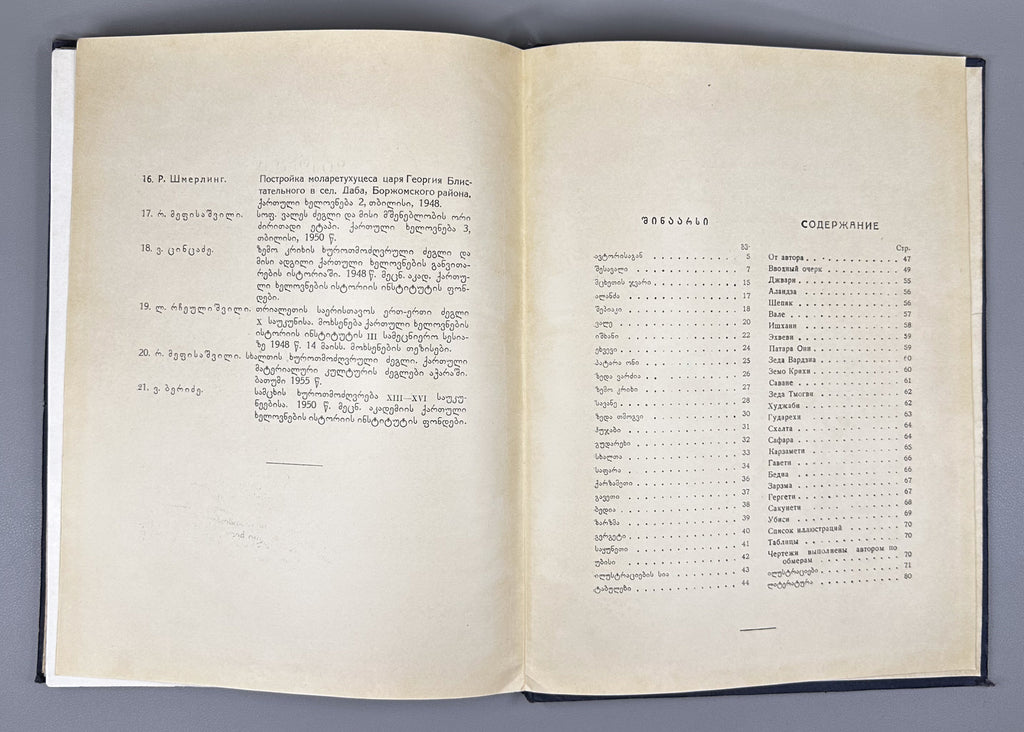 16. Р. Шмерлинг. Постройка моларетухуцеса царя Георгия Блис-
тательного в сел. Даба, Боржомского района,
ქართული ხელოვნება 2, თბილისი, 1948.
17. რ. მეფისაშვილი. სოფ. ვალეს ძეგლი და მისი მშენებლობის ორი
ძირითადი ეტაპი. ქართული ხელოვნება 3,
თბილისი, 1950 წ.
18. ვ. ცინცაძე. ზემო კრიხის ხუროთმოძღვრული ძეგლი და
მისი ადგილი ქართული ხელოვნების განვითა-
რების ისტორიაში. 1948 წ. მეცნ. აკად. ქართუ-
ლი ხელოვნების ისტორიის ინსტიტუტის ფონ-
დები.
19. ლ. რჩეულიშვილი. თრიალეთის საერისთავოს ერთ-ერთი ძეგლი
X საუკუნისა. მოხსენება ქართული ხელოვნების
ისტორიის ინსტიტუტის III სამეცნიერო სესია-
ზე 1948 წ. 14 მაისს. მოხსენების თეზისები.
20. რ. მეფისაშვილი. სხალთის ხუროთმოძღვრული ძეგლი. ქართული
მატერიალური კულტურის ძეგლები აჭარაში.
ბათუმი 1955 წ.
21. ვ. ბერიძე. სამცხის ხუროთმოძღვრება XIII—XVI საუკუ-
ნეებისა. 1950 წ. მეცნ. აკადემიის ქართული
ხელოვნების ისტორიის ინსტიტუტის ფონდები.
შინაარსი
გვ.
ავტორისაგან 5
შესავალი 7
მცხეთის ჯვარი 15
ალანძა 17
შეპიაკი 18
ვალე 20
იშხანი 22
ეხვევი 24
პატარა ონი 25
ზედა ვარძია 26
ზემო კრიხი 27
სავანე 28
ზედა თმოგვი 30
ხუჯაბი 31
გუდარეხი 32
სხალთა 33
საფარა 34
ქარზამეთი 36
გავეთი 37
ბედია 38
ზარზმა 39
გერგეტი 40
საყუნეთი 41
უბისი 42
ილუსტრაციების სია 43
ტაბულები 44
СОДЕРЖАНИЕ
Стр.
От автора 47
Вводный очерк 49
Джвари 55
Аландза 56
Шепяк 56
Вале 57
Ишхани 58
Эхвеви 59
Патара Они 59
Зеда Вардзиа 60
Земо Крихи 60
Саване 61
Зеда Тмогви 62
Худжаби 62
Гударехи 63
Схалта 64
Сафара 64
Карзамети 65
Гавети 66
Бедиа 66
Зарзма 67
Гергети 67
Сакунети 68
Убиси 69
Список иллюстраций 70
Таблицы 70
Чертежи выполнены автором по
обмерам 70
ილუსტრაციები 71
ლიტერატურა 80